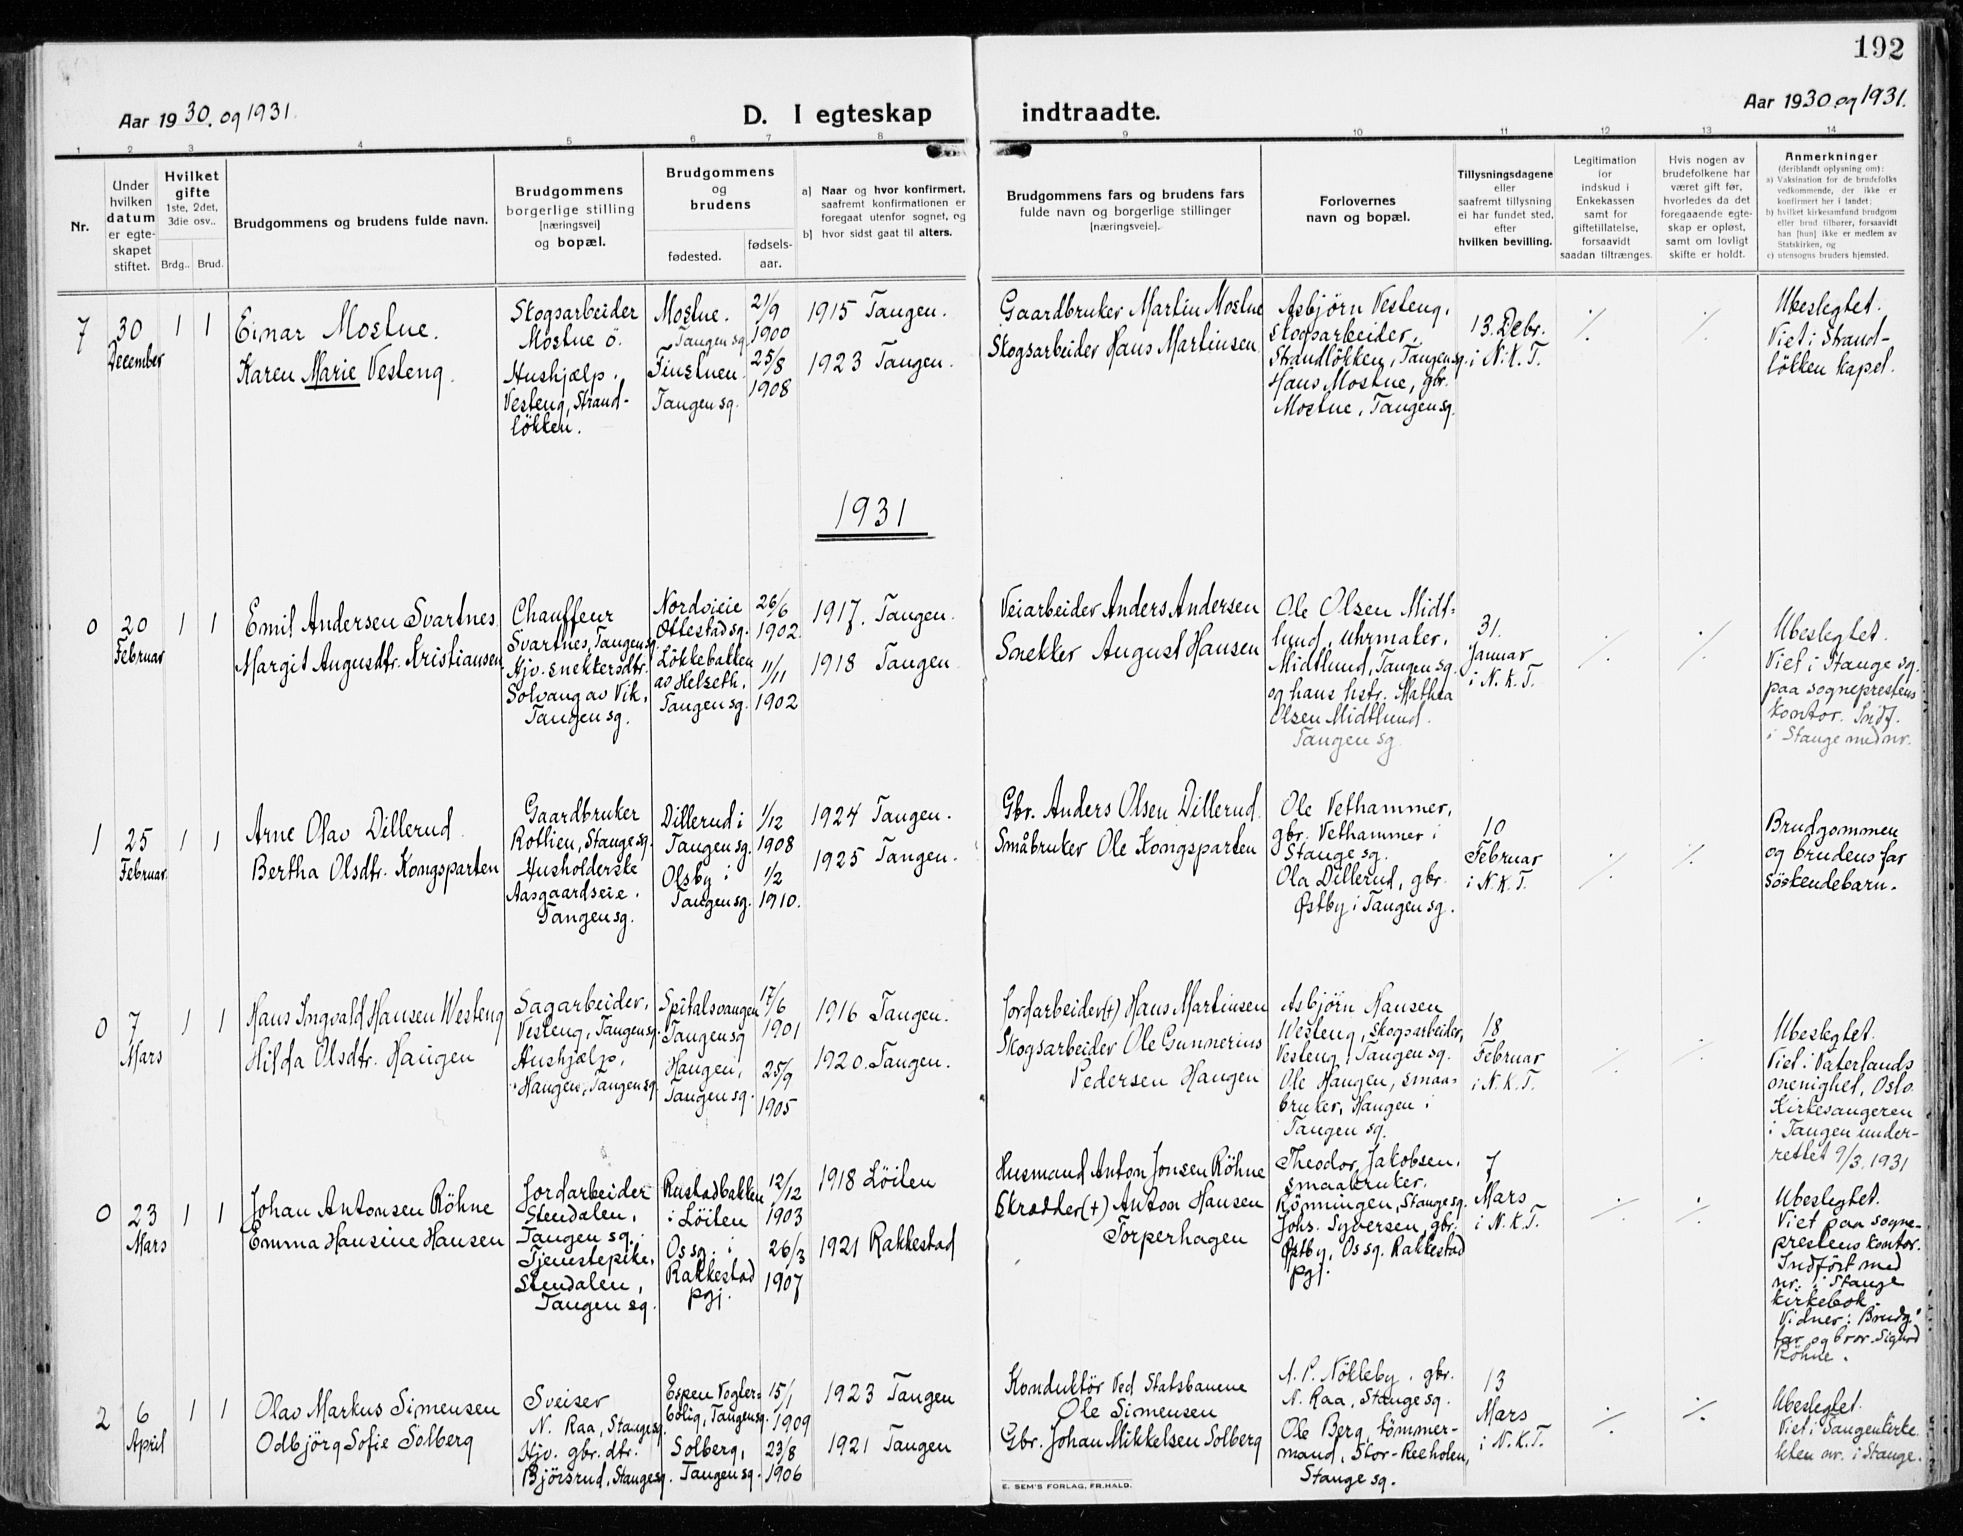 192
Aar 1930. og 1931.
D. I egteskap indtraadte.
Aar 1930. og 1931.
1 2 3 4 5 6 7 8 9 10 11 12 13 14
Nr.
Under
hvilken
datum
er egte-
skapet
stiftet.
Hvilket
gifte
1ste, 2det,
3die osv..
Brdg.. Brud.
Brudgommens og brudens fulde navn.
Brudgommens
borgerlige stilling
[næringsvei]
og bopæl.
Brudgommens
og
brudens
fødested.
fødsels-
aar.
a] Naar og hvor konfirmert,
saafremt konfirmationen er
foregaat utenfor sognet, og
b] hvor sidst gaat til alters.
Brudgommens fars og brudens fars
fulde navn og borgerlige stillinger
[næringsveie].
Forlovernes
navn og bopæl.
Tillysningsdagene
eller
saafremt tillysning
ei har fundet sted,
efter
hvilken bevilling.
Legitimation
for
indskud i
Enkekassen
samt for
giftetillatelse,
forsaavidt
saadan tiltrænges.
Hvis nogen av
brudefolkene har
været gift før,
hvorledes da det
foregaaende egte-
skap er opløst,
samt om lovligt
skifte er holdt.
Anmerkninger
(deriblandt oplysning om):
a) Vaksination for de brudefolks
vedkommende, der ikke er
konfirmert her i landet;
b) hvilket kirkesamfund brudgom
eller brud tilhører, forsaavidt
han [hun] ikke er medlem av
Statskirken, og
c) utensogns bruders hjemsted.
7
30
December
1 1
Einar Mostue.
Karen Marie Vesteng.
Skogsarbeider
Mostue ö.
Hushjælp,
Vesteng, Strand-
lökken.
Mostue.
Tangen sq.
Finstuen
Tangen sq.
21/9
1900
25/8
1908
1915 Tangen.
1923 Tangen.
Gaardbruker Martin Mostue
Skogsarbeider Hans Martinsen
Asbjørn Vesteng,
skogsarbeider,
Strandlökken, Tangen sq.
Hans Mostue, gbr.
Mostue, Tangen sq.
13. Debr.
i N.K.T.
./. ./.
Ubeslegtet.
Viet i Strand-
lökken kapel.
1931
0
20
Februar
1 1
Emil Andersen Svartnes
Margit Augustdtr. Kristiansen
Chauffeur
Svartnes, Tangen sq.
Hjv. snekkersdtr.
Solvang av Vik,
Tangen sq.
Nordvieie
Ottestad sq.
Lökkebakken
av Helseth,
Tangen sq.
26/6
1902.
11/11
1902
1917. Tangen.
1918 Tangen.
Veiarbeider Anders Andersen
Snekker August Hansen
Ole Olsen Midt-
lund, uhrmaker,
Midtlund, Tangen sq.
og hans hstr. Mathea
Olsen Midtlund.
Tangen sq.
31.
Januar
i N.K.T.
./. ./.
Ubeslegtet.
Viet i Stange sq.
paa sogneprestens
kontor. Indf.
i Stange med nr.
1
25
Februar
1 1
Arne Olav Dillerud.
Bertha Olsdtr. Kongsparten
Gaardbruker
Rotlien, Stange sq.
Husholderske
Aasgaardseie.
Tangen sq.
Dillerud i
Tangen sq.
Olsby i
Tangen sq.
1/12
1908
1/2
1910.
1924 Tangen.
1925 Tangen.
Gbr. Anders Olsen Dillerud.
Småbruker Ole Kongsparten
Ole Vethammer,
gbr. Vethammer i
Stange sq.
Ola Dillerud, gbr.
Østby i Tangen sq.
10
Februar
i N.K.T.
./. ./.
Brudgommen
og brudens far
söskendebarn.
0
7
Mars
1 1
Hans Ingvald Hansen Westeng
Hilda Olsdtr. Haugen
Sagarbeider,
Vesteng, Tangen sq.
Hushjælp,
Haugen, Tangen sq.
Spitalsvangen
Tangen sq
Haugen,
Tangen sq.
17/6
1901
25/9
1905
1916 Tangen.
1920. Tangen.
Jordarbeider(+) Hans Martinsen
Skogsarbeider Ole Gunnerius
Pedersen Haugen
Asbjørn Hansen
Westeng, skogsarbeider,
Vesteng, Tangen sq.
Ole Haugen, smaa-
bruker, Haugen i
Tangen sq.
18
Februar
i N.K.T.
./. ./.
Ubeslegtet.
Viet i Vaterlands
menighet, Oslo.
Kirkesangeren
i Tangen under-
rettet 9/3. 1931
0
23
Mars
1 1
Johan Antonsen Röhne
Emma Hansine Hansen
Jordarbeider
Stendalen,
Tangen sq.
Tjenestepike,
Stendalen,
Tangen sq.
Rustadbakken
i Löiten
Os sq. i
Rakkestad
pgj.
12/12
1903
26/3
1907
1918 Löiten
1921 Rakkestad
Husmand Anton Jonsen Röhne
Skrædder(+) Anton Hansen
Torperhagen
Theodor Jakobsen,
smaabruker,
Rönningen, Stange sq.
Johs. Syversen, gbr.
Østby, Os sq. Rakkestad
pgj.
7
Mars
i N.K.T.
./. ./.
Ubeslegtet.
Viet paa sogne-
prestens kontor.
Indfört med
nr. i Stange
kirkebok.
Vidner: Brudg.
far og bror Sigurd
Röhne.
2
6
April
1 1
Olav Markus Simensen
Odbjörg Sofie Solberg
Sveiser
N. Raa, Stange sq.
Hjv. gbr. dtr.
Björsrud, Stange sq.
Espen Vogter-
bolig, Tangen sq.
Solberg,
Tangen sq.
15/1
1909
23/8
1906
1923 Tangen
1921 Tangen
Konduktör ved Statsbanene
Ole Simensen
Gbr. Johan Mikkelsen Solberg
A. P. Nökleby. gbr.
N. Raa, Stange sq.
Ole Berg, tömmer-
mand, Stor-Reeholen,
Stange sq.
13
Mars
i N.K.T.
./. ./.
Ubeslegtet.
Viet i Tangen kirke
uten nr. i Stange.
E. SEM'S FORLAG, FR.HALD.